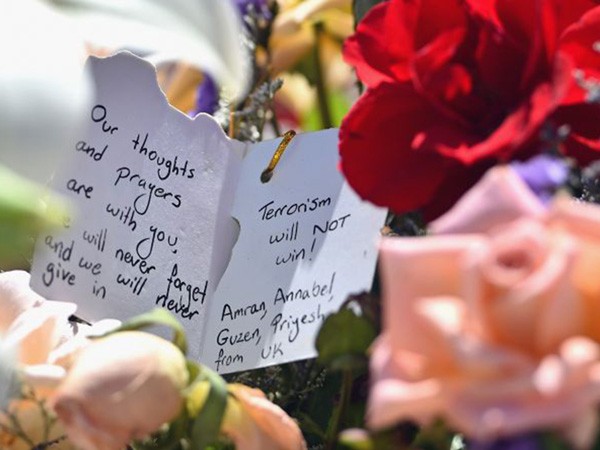 Our thoughts
and prayers
are with you,
will never forget
and we will never
give in
Terrorism
will NOT
win!
Amran, Annabel,
Guzen, Priyesh,
from UK